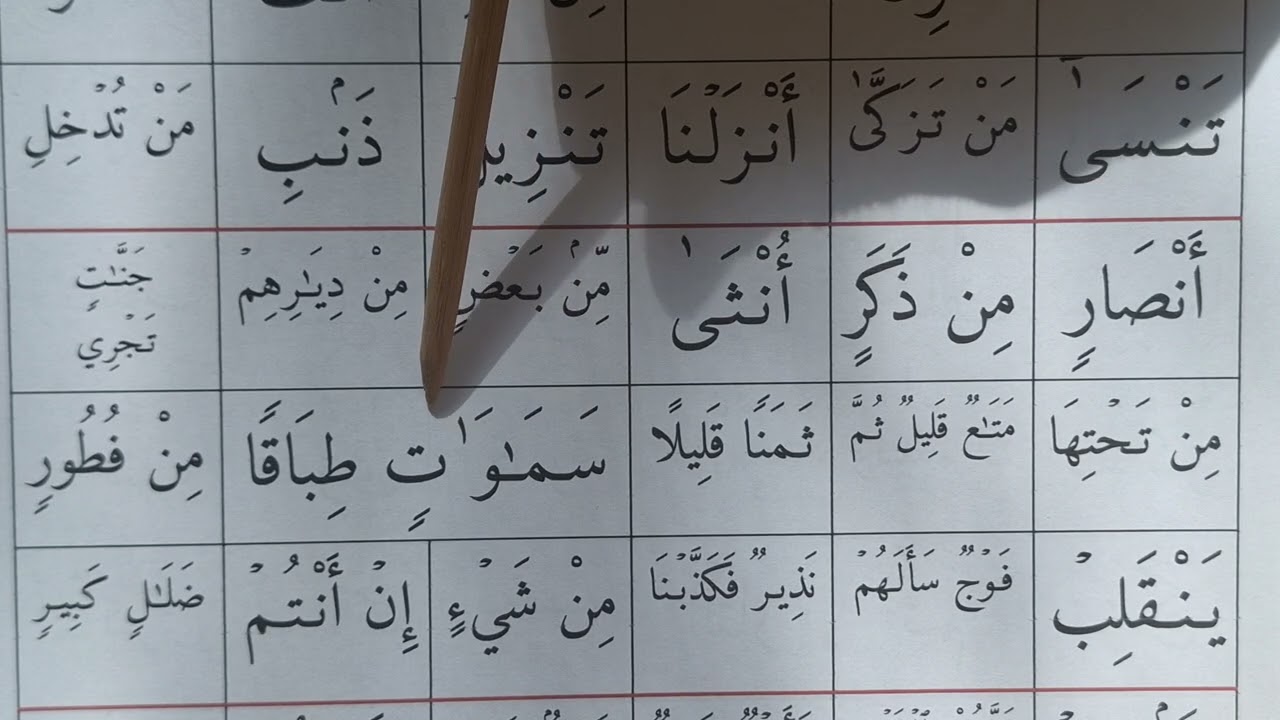 تَنْسَىٰٓ مَنْ تَزَكَّىٰ أَنْزَلْنَا ذَنۢبِ مَنْ تُدْخِلِ
أَنْصَارٍ مِنْ ذَكَرٍ أُنْثَىٰ مِّنۢ بَعْضٍ مِنْ دِيَـٰرِهِمْ جَنَّـٰتٍ
تَجْرِي
مِنْ تَحْتِهَا مَتَـٰعٌ قَلِيلٌ ثُمَّ ثَمَنًا قَلِيلًا سَمَـٰوَٰتٍ طِبَاقًا مِنْ فُطُورٍ
يَنْقَلِبْ فَوْجٌ سَأَلَهُمْ نَذِيرٌ فَكَذَّبْنَا مِنْ شَيْءٍ إِنْ أَنْتُمْ ضَلَـٰلٍ كَبِيرٍ